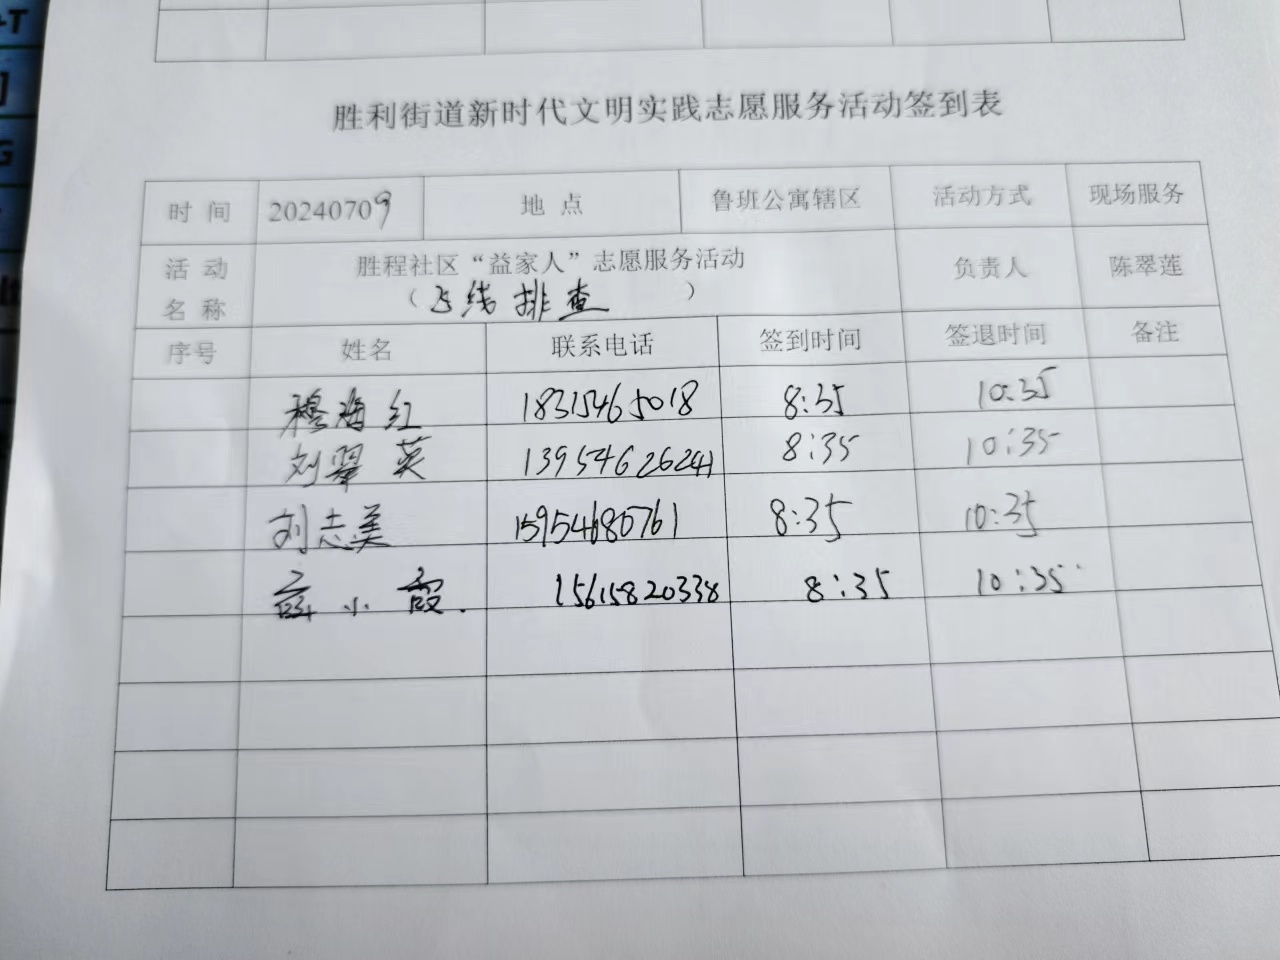 胜利街道新时代文明实践志愿服务活动签到表
时 间 20240709 地 点 鲁班公寓辖区 活动方式 现场服务
活 动 名 称 胜程社区“益家人”志愿服务活动 负责人 陈翠莲
（飞线排查）
序号 姓名 联系电话 签到时间 签退时间 备注
穆海红 18315465018 8:35 10:35
刘翠英 13954626241 8:35 10:35
刘志美 15954680761 8:35 10:35
薛小霞. 15615820338 8:35 10:35